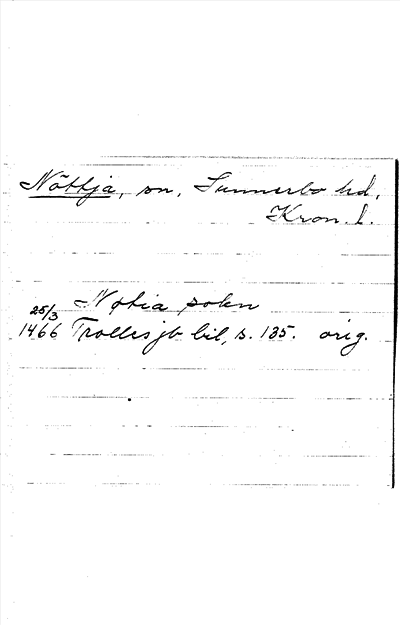 Nöttja, sn, Sunnerbo hd,
Kron. l.
25/3 Nøtia sokn
1466 Trolles jb bil, s. 135. orig.